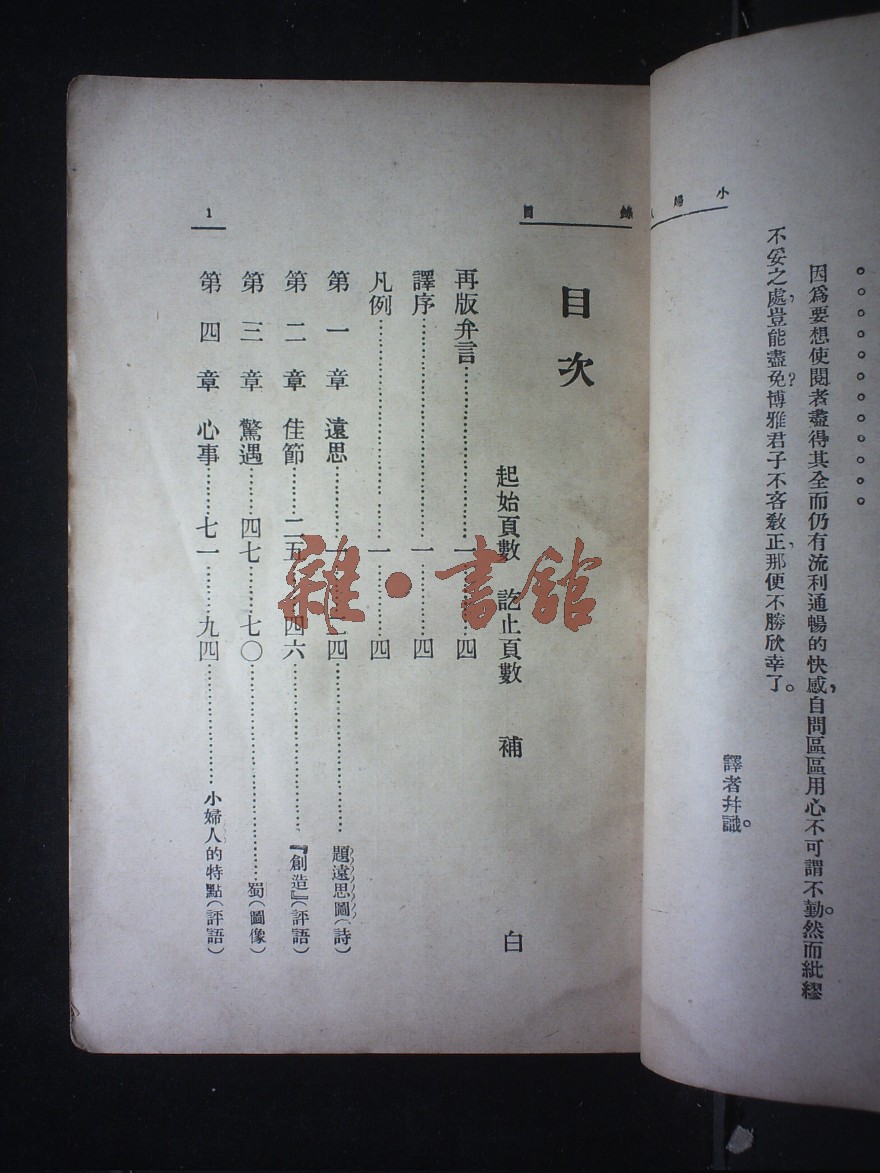 小婦人
因爲要想使閱者盡得其全而仍有流利通暢的快感，自問區區用心不可謂不勤。然而紕繆
不妥之處，豈能盡免？博雅君子不吝敎正，那便不勝欣幸了。
譯者幷識。
目錄
目次
起始頁數 訖止頁數 補白
再版弁言……一……四
譯序……一……四
凡例……一……四
第一章 遠思……一……二四……題遠思圖（詩）
第二章 佳節……二五……四六……『創造』（評語）
第三章 驚遇……四七……七〇……蜀（圖像）
第四章 心事……七一……九四……小婦人的特點（評語）
1
雜·書館